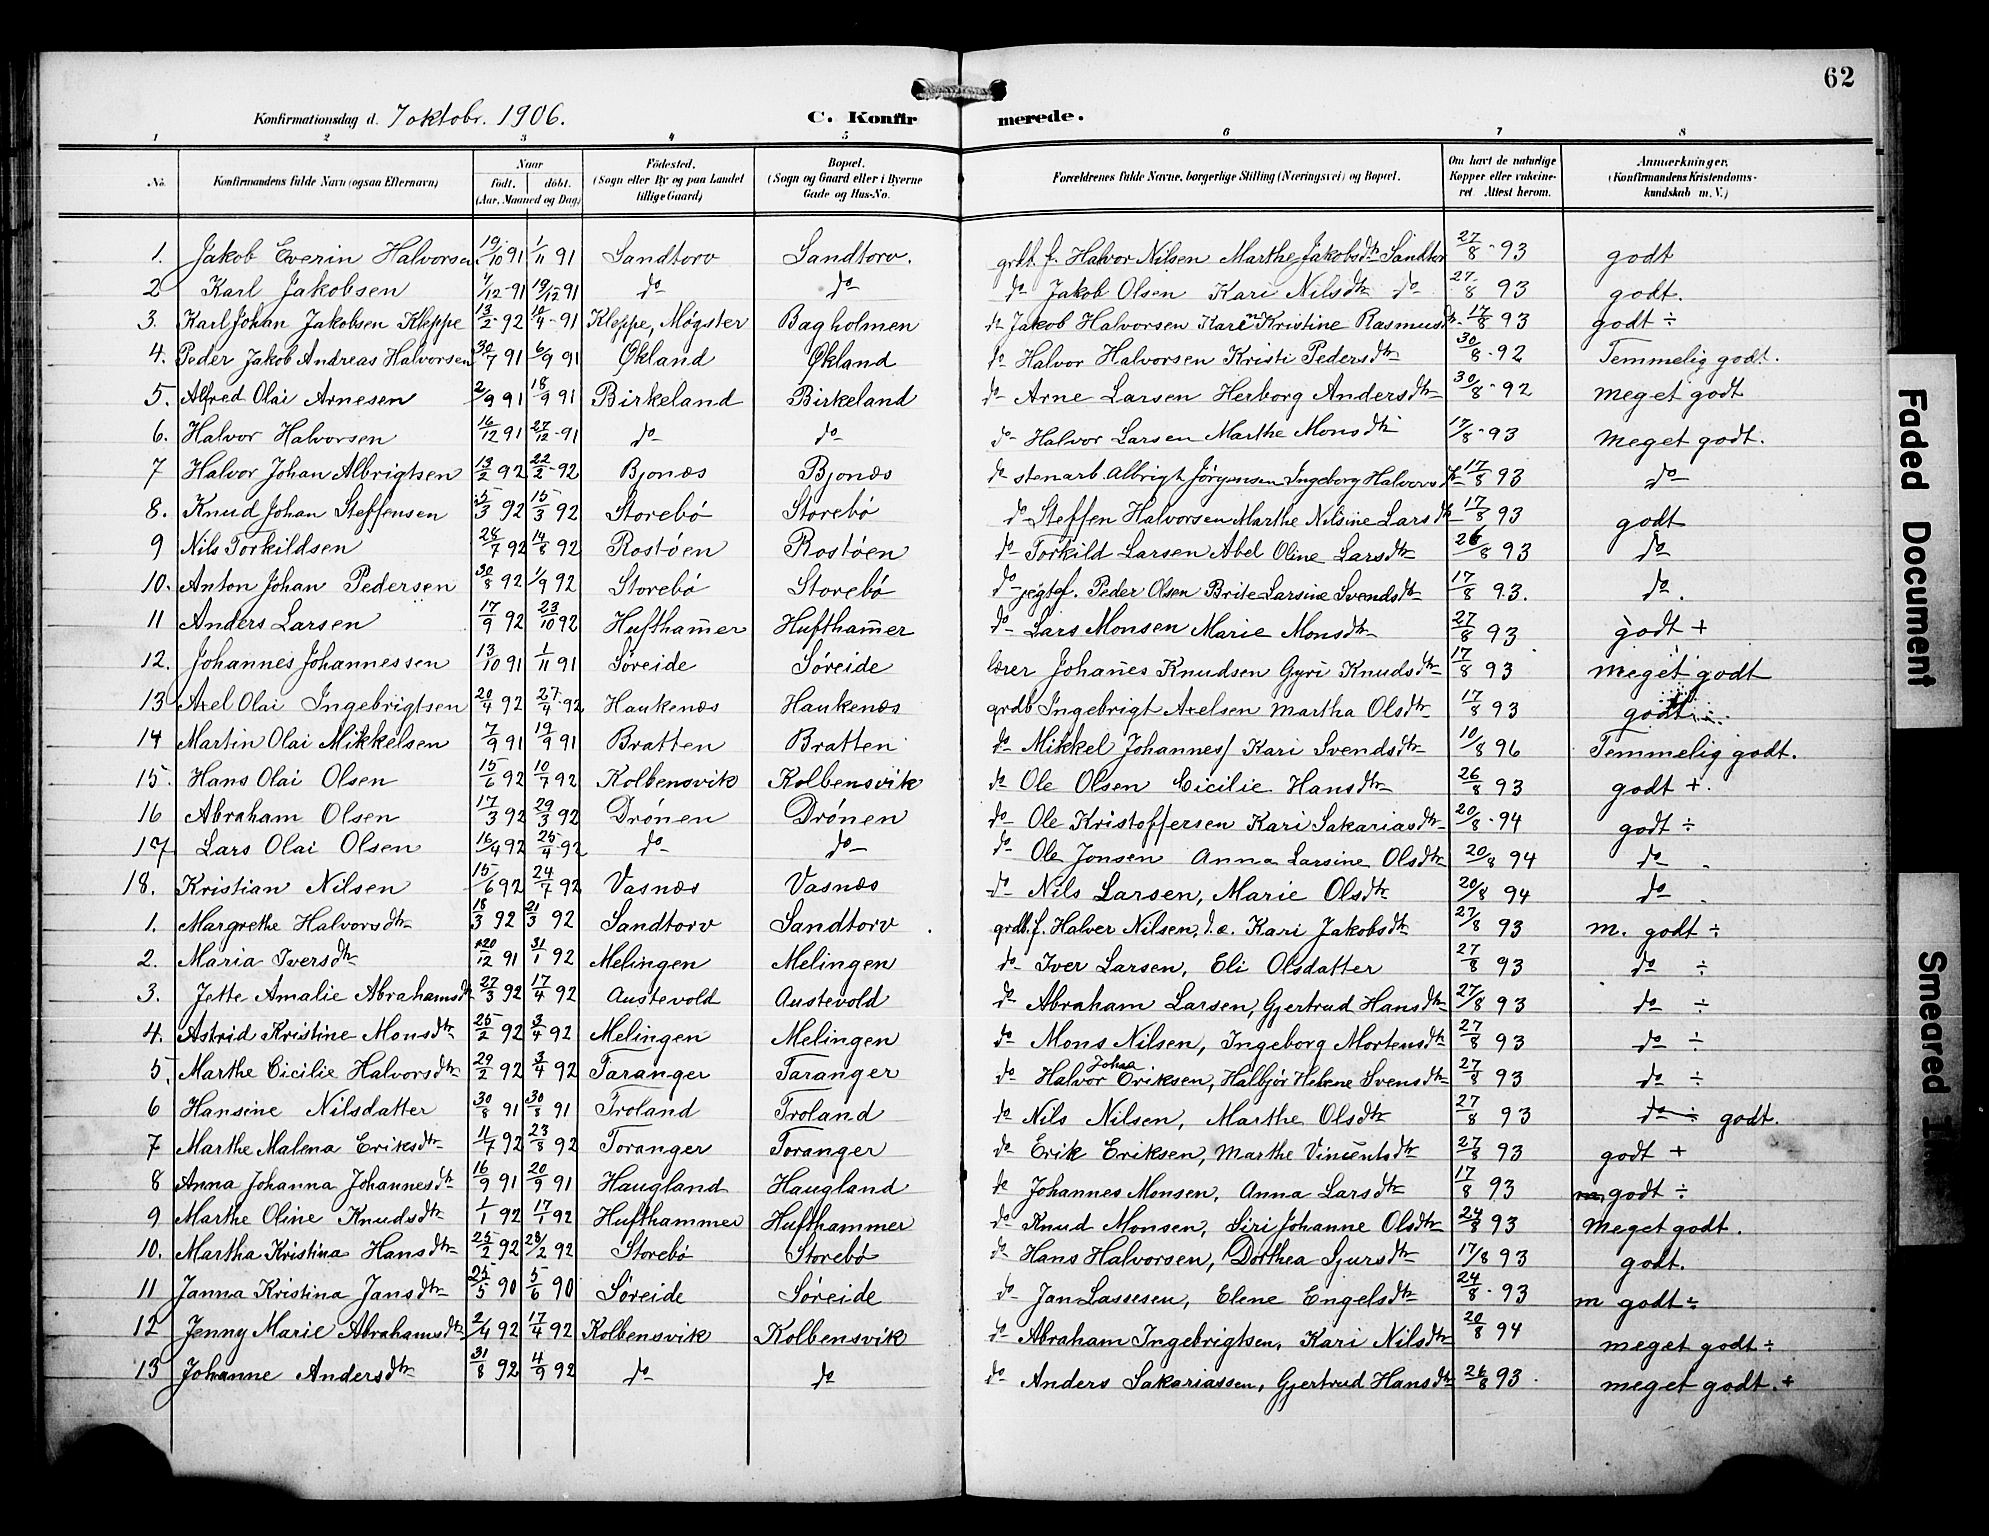 62
Konfirmationsdag d. 7 oktobr. 1906.
C. Konfirmerede.
1 2 3 4 5 6 7 8
No. Konfirmandens fulde Navn (ogsaa Efternavn) Naar født. døbt. (Aar, Maaned og Dag) Födested. (Sogn eller By og paa Landet tillige Gaard) Bopæl. (Sogn og Gaard eller i Byerne Gade og Hus-No. Forældrenes fulde Navne, borgerlige Stilling (Næringsvei) og Bopæl. Om havt de naturlige Kopper eller vakcineret Attest herom. Anmærkninger, (Konfirmandens Kristendomskundskab m. V.)
1. Jakob Everin Halvorsen 19/10 91 1/11 91 Sandtorv Sandtorv. grdb. f. Halvor Nilsen Marthe Jakobsdtr Sandtor 27/8 - 93 godt
2 Karl Jakobsen 1/12 - 91 19/12 91 do do do Jakob Olsen Kari Nilsdtr do 27/8 93 godt.
3. Karl Johan Jakobsen Kleppe 13/2 - 92 18/4 - 91 Kleppe, Møgster Bagholmen do Jakob Halvorsen Kari Kristine Rasmusdtr 17/8 93 godt ÷
4. Peder Jakob Andreas Halvorsen 30/7 91 6/9 91 Økland Økland do Halvor Halvorsen Kristi Pedersdtr 30/8 - 92 Temmelig godt.
5. Alfred Olai Arnesen 2/9 91 18/9 91 Birkeland Birkeland do Arne Larsen Herborg Andersdtr 30/8 - 92 meget godt
6. Halvor Halvorsen 16/12 91 27/12 - 91 do do do Halvor Larsen Marthe Monsdtr 17/8 - 93 meget godt.
7 Halvor Johan Albrigtsen 13/2 92 22/2 - 92 Bjonæs Bjonæs do stenarb. Albrigt Jörgensen Ingeborg Halvorsdtr 17/8 93 do
8. Knud Johan Steffensen 5/3 92 15/3 92 Storebö Storebö do Steffen Halvorsen Marthe Nilsine Larsdtr 17/8 93 godt
9 Nils Torkildsen 28/7 92 14/8 92 Rostöen Rostöen do Torkild Larsen Abel Oline Larsdtr 26/8 93 do
10. Anton Johan Pedersen 30/8 92 1/9 92 Storebö Storebö do jegtef. Peder Olsen Brite Larsine Svendsdtr 17/8 93. do.
11 Anders Larsen 17/9 92 23/10 92 Huftham̄er Huftham̄er do Lars Monsen Marie Monsdtr 27/8 93 godt +
12. Johannes Johannessen 13/10 91 1/11 91 Søreide Søreide lærer Johan̄es Knudsen Gyri Knudsdtr 17/8 93 meget godt
13 Axel Olai Ingebrigtsen 20/4 92 27/4 - 92 Haukenæs Haukenæs grdb Ingebrigt Axelsen Martha Olsdtr 17/8 93 godt
14 Martin Olai Mikkelsen 7/9 91 19/9 91 Bratten Bratten do Mikkel Johannes/ Kari Svendsdtr 10/8 96 Temmelig godt.
15. Hans Olai Olsen 15/6 92 10/7 92 Kolbensvik Kolbensvik do Ole Olsen Cicilie Hansdtr 26/8 93 godt +.
16 Abraham Olsen 17/3 92 29/3 92 Drönen Drönen do Ole Kristoffersen Kari Sakariasdtr 20/8 - 94 godt ÷
17 Lars Olai Olsen 16/4 92 25/4 - 92 do do do Ole Jonsen Anna Larsine Olsdtr 20/8 94 do
18. Kristian Nilsen 15/6 92 24/7 92 Vasnæs Vasnæs do Nils Larsen, Marie Olsdtr 20/8 94 do
1. Margrethe Halvorsdtr 18/3 92 21/3 92 Sandtorv Sandtorv. grdb. f. Halver Nilsen, Kari Jakobsdtr 27/8 93 m. godt ÷
2. Maria Iversdtr 20/12 91 31/1 92 Melingen Melingen do Iver Larsen, Eli Olsdatter 27/8 93 do ÷
3. Jette Amalie Abrahamsdtr 27/3 92 17/4 92 Austevold Austevold do Abraham Larsen, Gjertrud Hansdtr 27/8 93 do ÷
4. Astrid Kristine Monsdtr 25/2 92 3/4 92 Melingen Melingen do Mons Nilsen, Ingeborg Mortensdtr 27/8 93 do ÷
5. Marthe Cicilie Halvorsdtr 29/2 92 3/4 92 Taranger Taranger do Halvor Johan Eriksen, Halbjör Helene Svensdtr 27/8 93 do ÷
6 Hansine Nilsdatter 30/8 91 30/8 91 Troland Troland do Nils Nilsen, Marthe Olsdtr 27/8 93 do ÷ godt.
7 Marthe Malena Eriksdtr 11/7 92 23/8 92 Toranger Toranger do Erik Eriksen, Marthe Vincentsdtr 27/8 93 godt +
8 Anna Johanna Johannesdtr 16/9 91 20/9 91 Haugland Haugland do Johannes Monsen, Anna Larsdtr 17/8 93 m godt ÷
9 Marthe Oline Knudsdtr 1/1 92 17/1 92 Hufthammer Hufthammer do Knud Monsen, Siri Johanne Olsdtr 24/8 93 Meget godt.
10. Martha Kristina Hansdtr 25/2 92 28/2 92 Storebö Storebö do Hans Halvorsen, Dorthea Sjursdtr 17/8 93 godt.
11 Janna Kristina Jansdtr 25/5 90 5/6 90 Søreide Søreide do Jan Lassesen, Elene Engelsdtr 24/8 - 93 m godt ÷
12 Jenny Marie Abrahamsdtr 2/4 92 17/4 92 Kolbensvik Kolbensvik do Abraham Ingebrigtsen, Kari Nilsdtr 20/8 94 meget godt ÷
13 Johanne Andersdtr 31/8 92 4/9 92 do do do Anders Sakariassen, Gjertrud Hansdtr 26/8 93. meget godt. +
Faded Document
Smeared